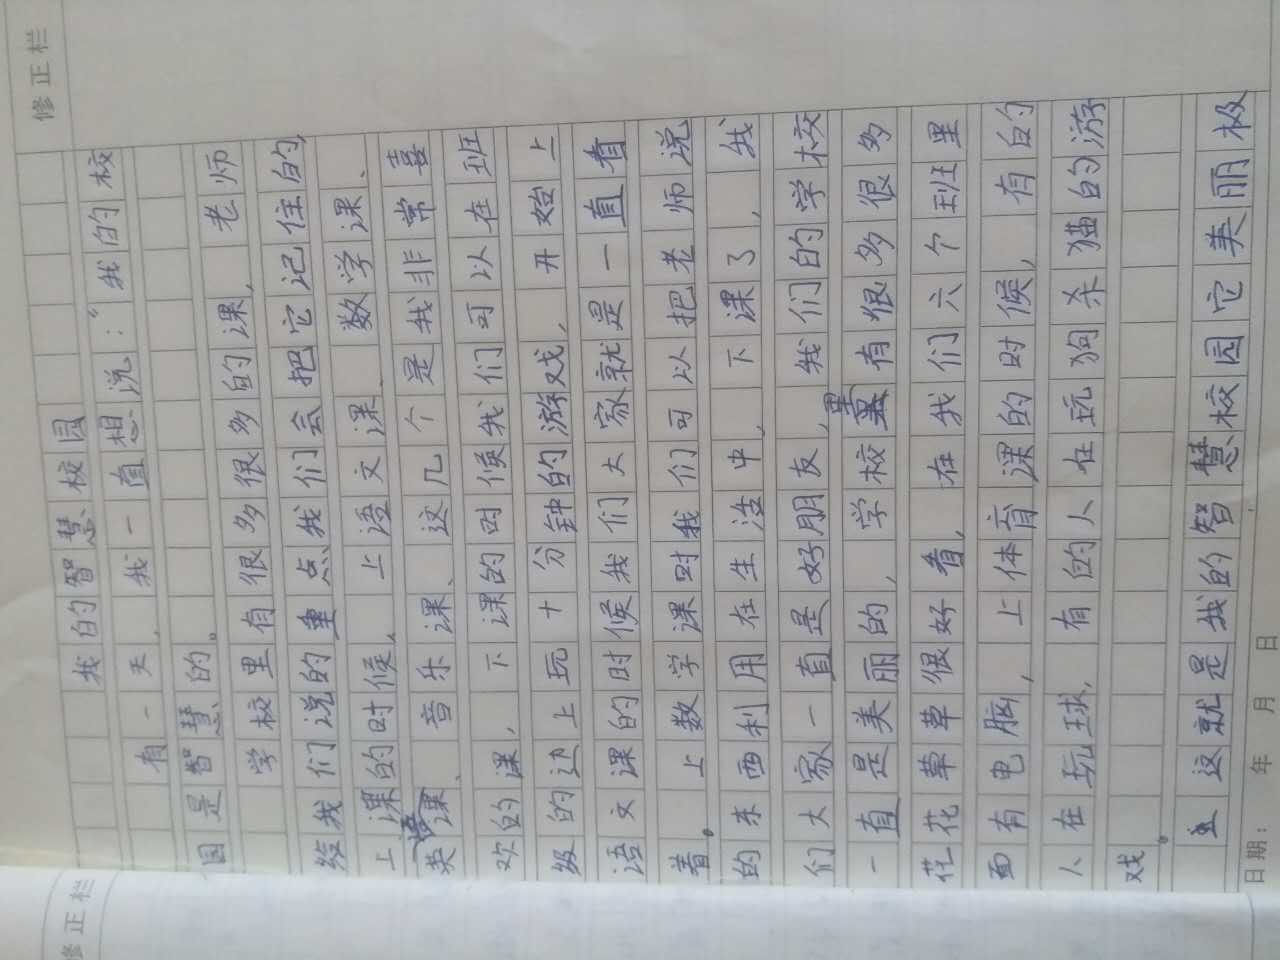 修正栏
我的智慧校园
有一天，我一直想说：“我的校
园是智慧的。
学校里有很多很多的课，老师
给我们说的重点我们会把它记住的，
上课的时候，上语文课、数学课、
英语课、音乐课、这几个是我非常喜
欢的课，下课的时候我们可以在班
级的边上玩十分钟的游戏，开始上
语文课的时候我们大家就是一直看
着。上数学课时我们可以把老师说
的东西利用在生活中，下课了，我
们大家一直是好朋友，我们的学校
一直是美丽的，学校里有很多很多
花花草草很好看，在我们六个班里
面有电脑，上体育课的时候，有的
人在玩球，有的人在玩狗杀猫的游
戏。
这就是我的智慧校园它美丽极
日期： 年 月 日
修正栏